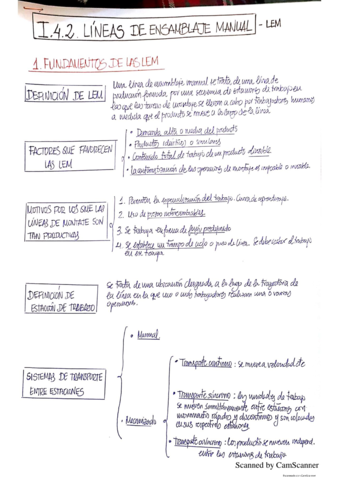 I.4.2. LÍNEAS DE ENSAMBLAJE MANUAL - LEM
1. FUNDAMENTOS DE LAS LEM
DEFINICIÓN DE LEM
Una línea de ensamblaje manual se trata de una línea de
producción formada por una secuencia de estaciones de trabajo en
las que las tareas de ensamblaje se llevan a cabo por trabajadores humanos
a medida que el producto se mueve a lo largo de la línea
FACTORES QUE FAVORECEN
LAS LEM
• Demanda alta o media del producto
• Productos idénticos o similares
• Contenido total de trabajo de un producto divisible
• La automatización de las operaciones de montaje es imposible o inviable.
MOTIVOS POR LOS QUE LAS
LÍNEAS DE MONTAJE SON
TAN PRODUCTIVAS
1. Permiten la especialización del trabajo. Curva de aprendizaje.
2. Uso de piezas intercambiables
3. Se trabaja en forma de flujo
4. Se establece un tiempo de ciclo o paso de línea. Se debe
DEFINICIÓN DE
ESTACIÓN DE TRABAJO
Se trata de una ubicación a lo largo de la trayectoria de
la línea en la que uno o más trabajadores realizan una o varias
operaciones.
SISTEMAS DE TRANSPORTE
ENTRE ESTACIONES
• Manual
• Mecanizado
• Transporte continuo: se mueve a velocidad cte
• Transporte síncrono: las unidades de trabajo
se mueven simultáneamente entre estaciones con
movimientos rápidos y discontinuos y son
en sus respectivas estaciones
• Transporte asíncrono: los productos se mueven independ.
entre las estaciones de trabajo
Scanned by CamScanner